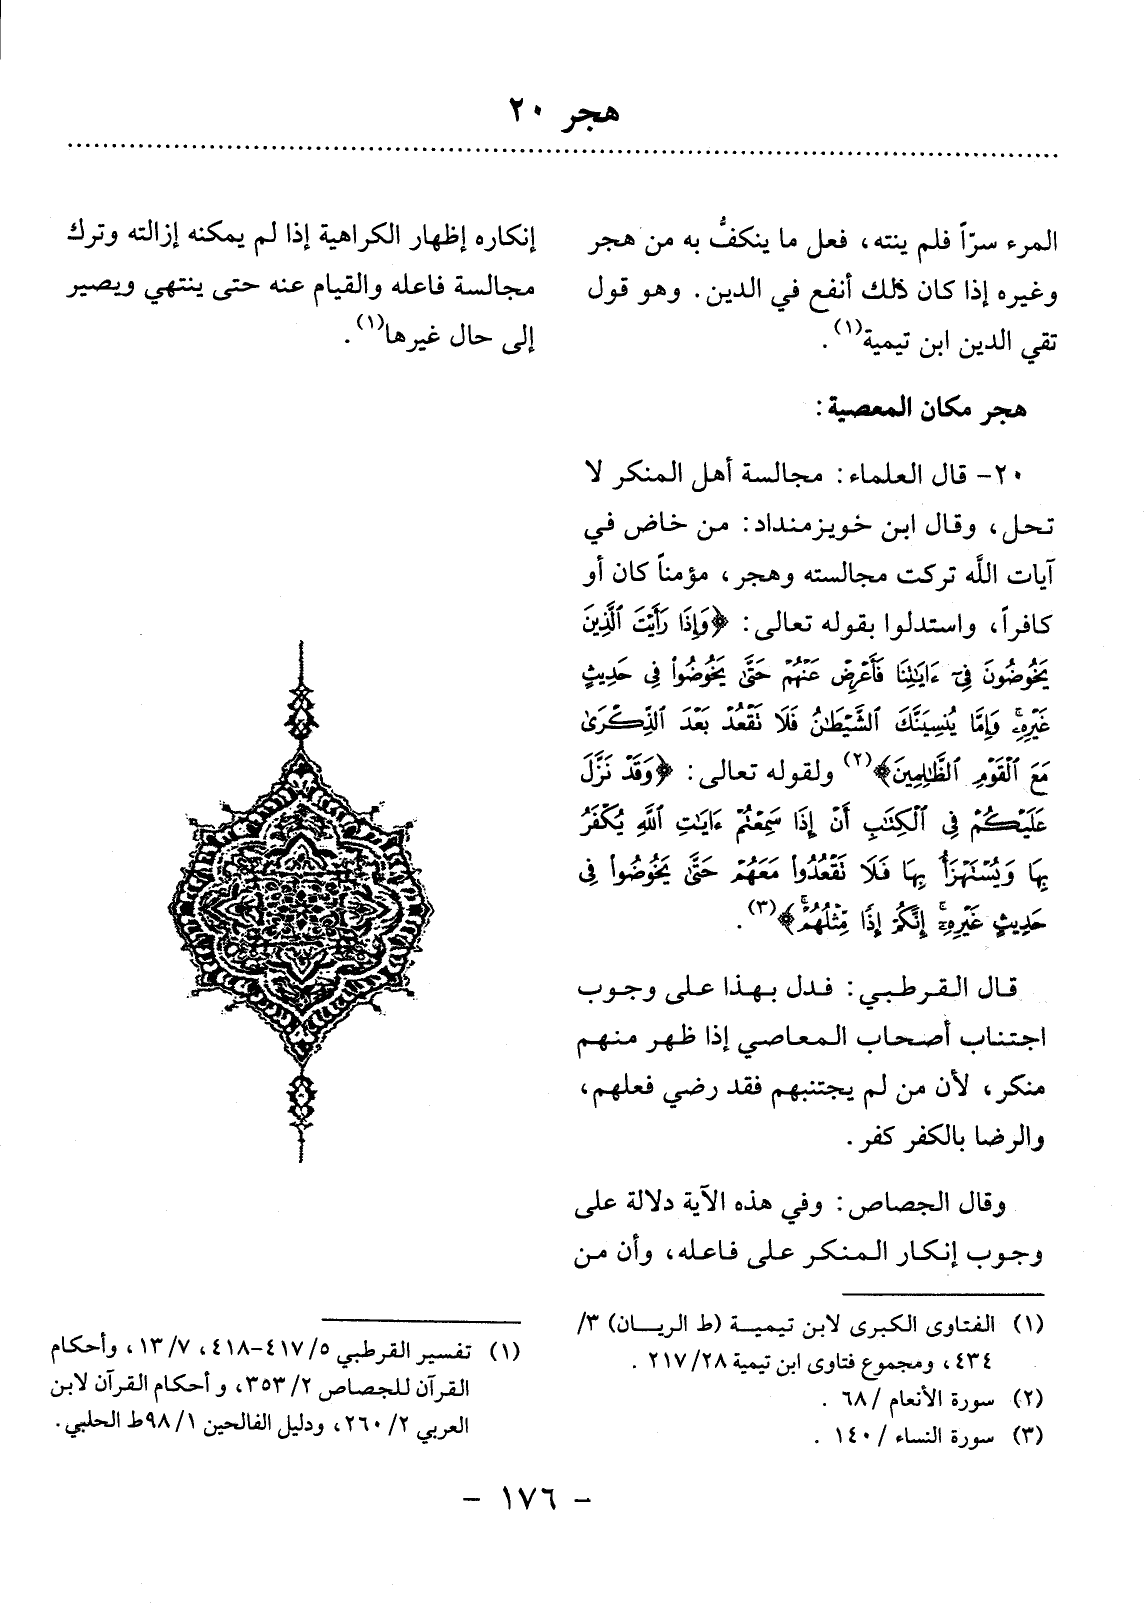 هجر ٢٠
المرء سرّاً فلم ينته، فعل ما ينكفُّ به من هجر
وغيره إذا كان ذلك أنفع في الدين. وهو قول
تقي الدين ابن تيمية(١).
هجر مكان المعصية:
٢٠- قال العلماء: مجالسة أهل المنكر لا
تحل، وقال ابن خويزمنداد: من خاض في
آيات اللَّه تركت مجالسته وهجر، مؤمناً كان أو
كافراً، واستدلوا بقوله تعالى: ﴿وَإِذَا رَأَيْتَ ٱلَّذِينَ
يَخُوضُونَ فِىٓ ءَايَٰتِنَا فَأَعْرِضْ عَنْهُمْ حَتَّىٰ يَخُوضُوا۟ فِى حَدِيثٍ
غَيْرِهِۦۚ وَإِمَّا يُنسِيَنَّكَ ٱلشَّيْطَٰنُ فَلَا نَقْعُدْ بَعْدَ ٱلذِّكْرَىٰ
مَعَ ٱلْقَوْمِ ٱلظَّٰلِمِينَ﴾(٢) ولقوله تعالى: ﴿وَقَدْ نَزَّلَ
عَلَيْكُمْ فِى ٱلْكِتَٰبِ أَنْ إِذَا سَمِعْتُمْ ءَايَٰتِ ٱللَّهِ يُكْفَرُ
بِهَا وَيُسْتَهْزَأُ بِهَا فَلَا نَقْعُدُوا۟ مَعَهُمْ حَتَّىٰ يَخُوضُوا۟ فِى
حَدِيثٍ غَيْرِهِۦٓۚ إِنَّكُمْ إِذًا مِّثْلُهُمْۗ﴾(٣).
قال القرطبي: فدل بهذا على وجوب
اجتناب أصحاب المعاصي إذا ظهر منهم
منكر، لأن من لم يجتنبهم فقد رضي فعلهم،
والرضا بالكفر كفر.
وقال الجصاص: وفي هذه الآية دلالة على
وجوب إنكار المنكر على فاعله، وأن من
(١) الفتاوى الكبرى لابن تيمية (ط الريان) ٣/
٤٣٤، ومجموع فتاوى ابن تيمية ٢٨/ ٢١٧.
(٢) سورة الأنعام / ٦٨.
(٣) سورة النساء / ١٤٠.
إنكاره إظهار الكراهية إذا لم يمكنه إزالته وترك
مجالسة فاعله والقيام عنه حتى ينتهي ويصير
إلى حال غيرها(١).
(١) تفسير القرطبي ٥/ ٤١٧-٤١٨، ٧/ ١٣، وأحكام
القرآن للجصاص ٢/ ٣٥٣، و أحكام القرآن لابن
العربي ٢/ ٢٦٠، ودليل الفالحين ١/ ٩٨ط الحلبي.
- ١٧٦ -